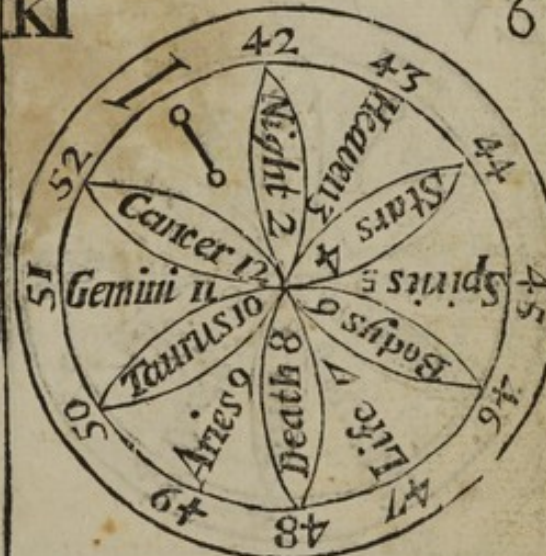 6
42
43
44
45
46
47
48
49
50
51
52
I
Night 2
Heaven 3
Stars 4
Spirits 5
Bodys 6
Life 7
Death 8
Aries 9
Taurus 10
Gemini 11
Cancer 12